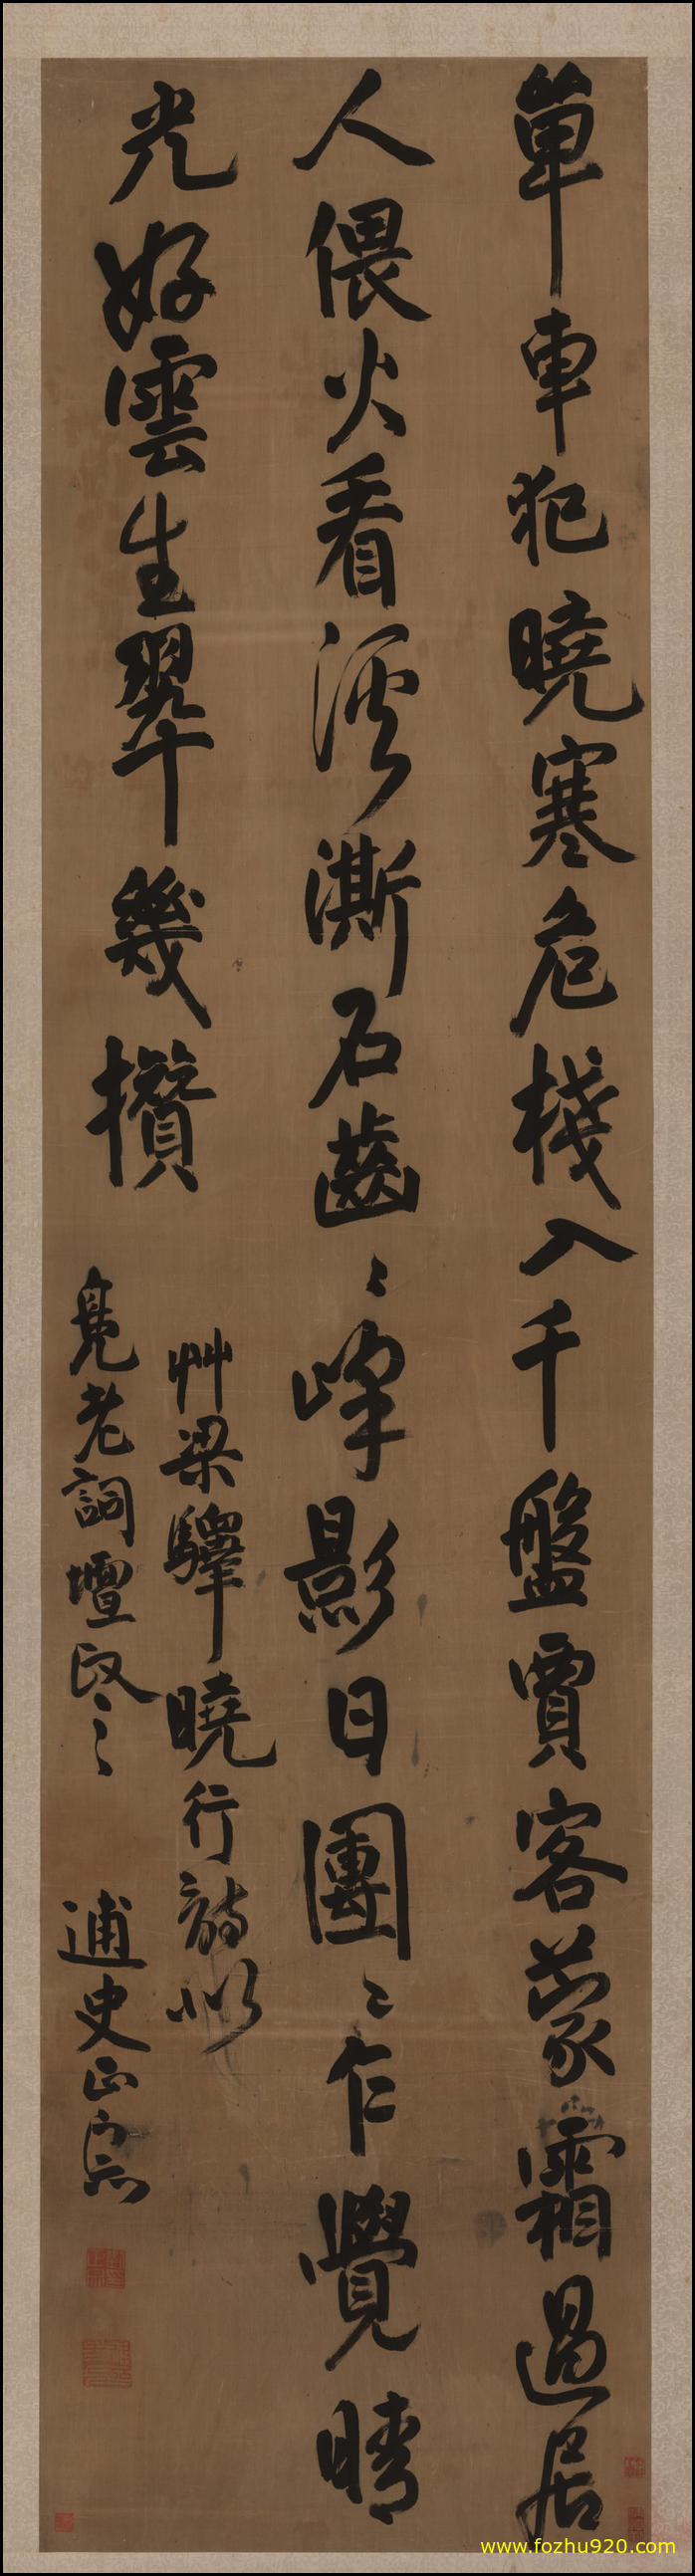 單車犯曉寒危棧入千盤賈客蒙霜過居
人偎火看溪澌石齒〻峰影日團〻乍覺晴
光好雲生翠幾攢
艸梁驛曉行詩似
老詞壇政〻
逋史正宗
www.fozhu920.com